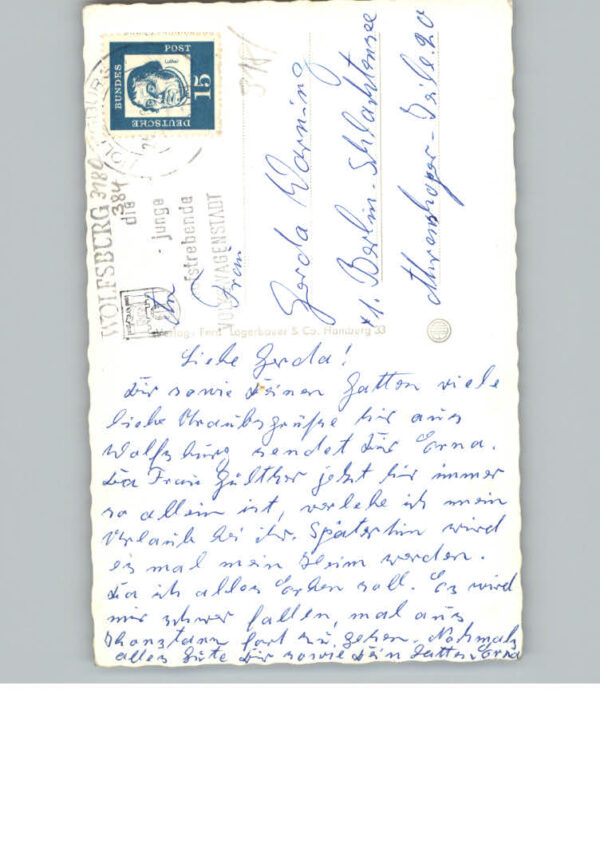 DEUTSCHE
BUNDES
POST
15
WOLFSBURG
die
junge
strebende
VOLKSWAGENSTADT
3180
384
An
Frau
Gerda Warning
41. Berlin-Schlachtensee
Zeile 20
Verlag: Ferd. Lagerbauer & Co. Hamburg 33
Liebe Gerda!
Dir sowie Deinen Gatten viele
liebe Uraubsgrüße hir aus
Wolfsburg sendet Dir Erna.
Da Frau Gülther jetzt hir immer
so allein ist, verlebe ich mein
Urlaub bei ihr. Späterhin wird
es mal mein Heim werden.
Da ich alles Erben soll. Es wird
mir schwer fallen, mal aus
Konstanz fort zu gehen. Nochmals
alles Gute Dir sowie Dein Gatten. Erna